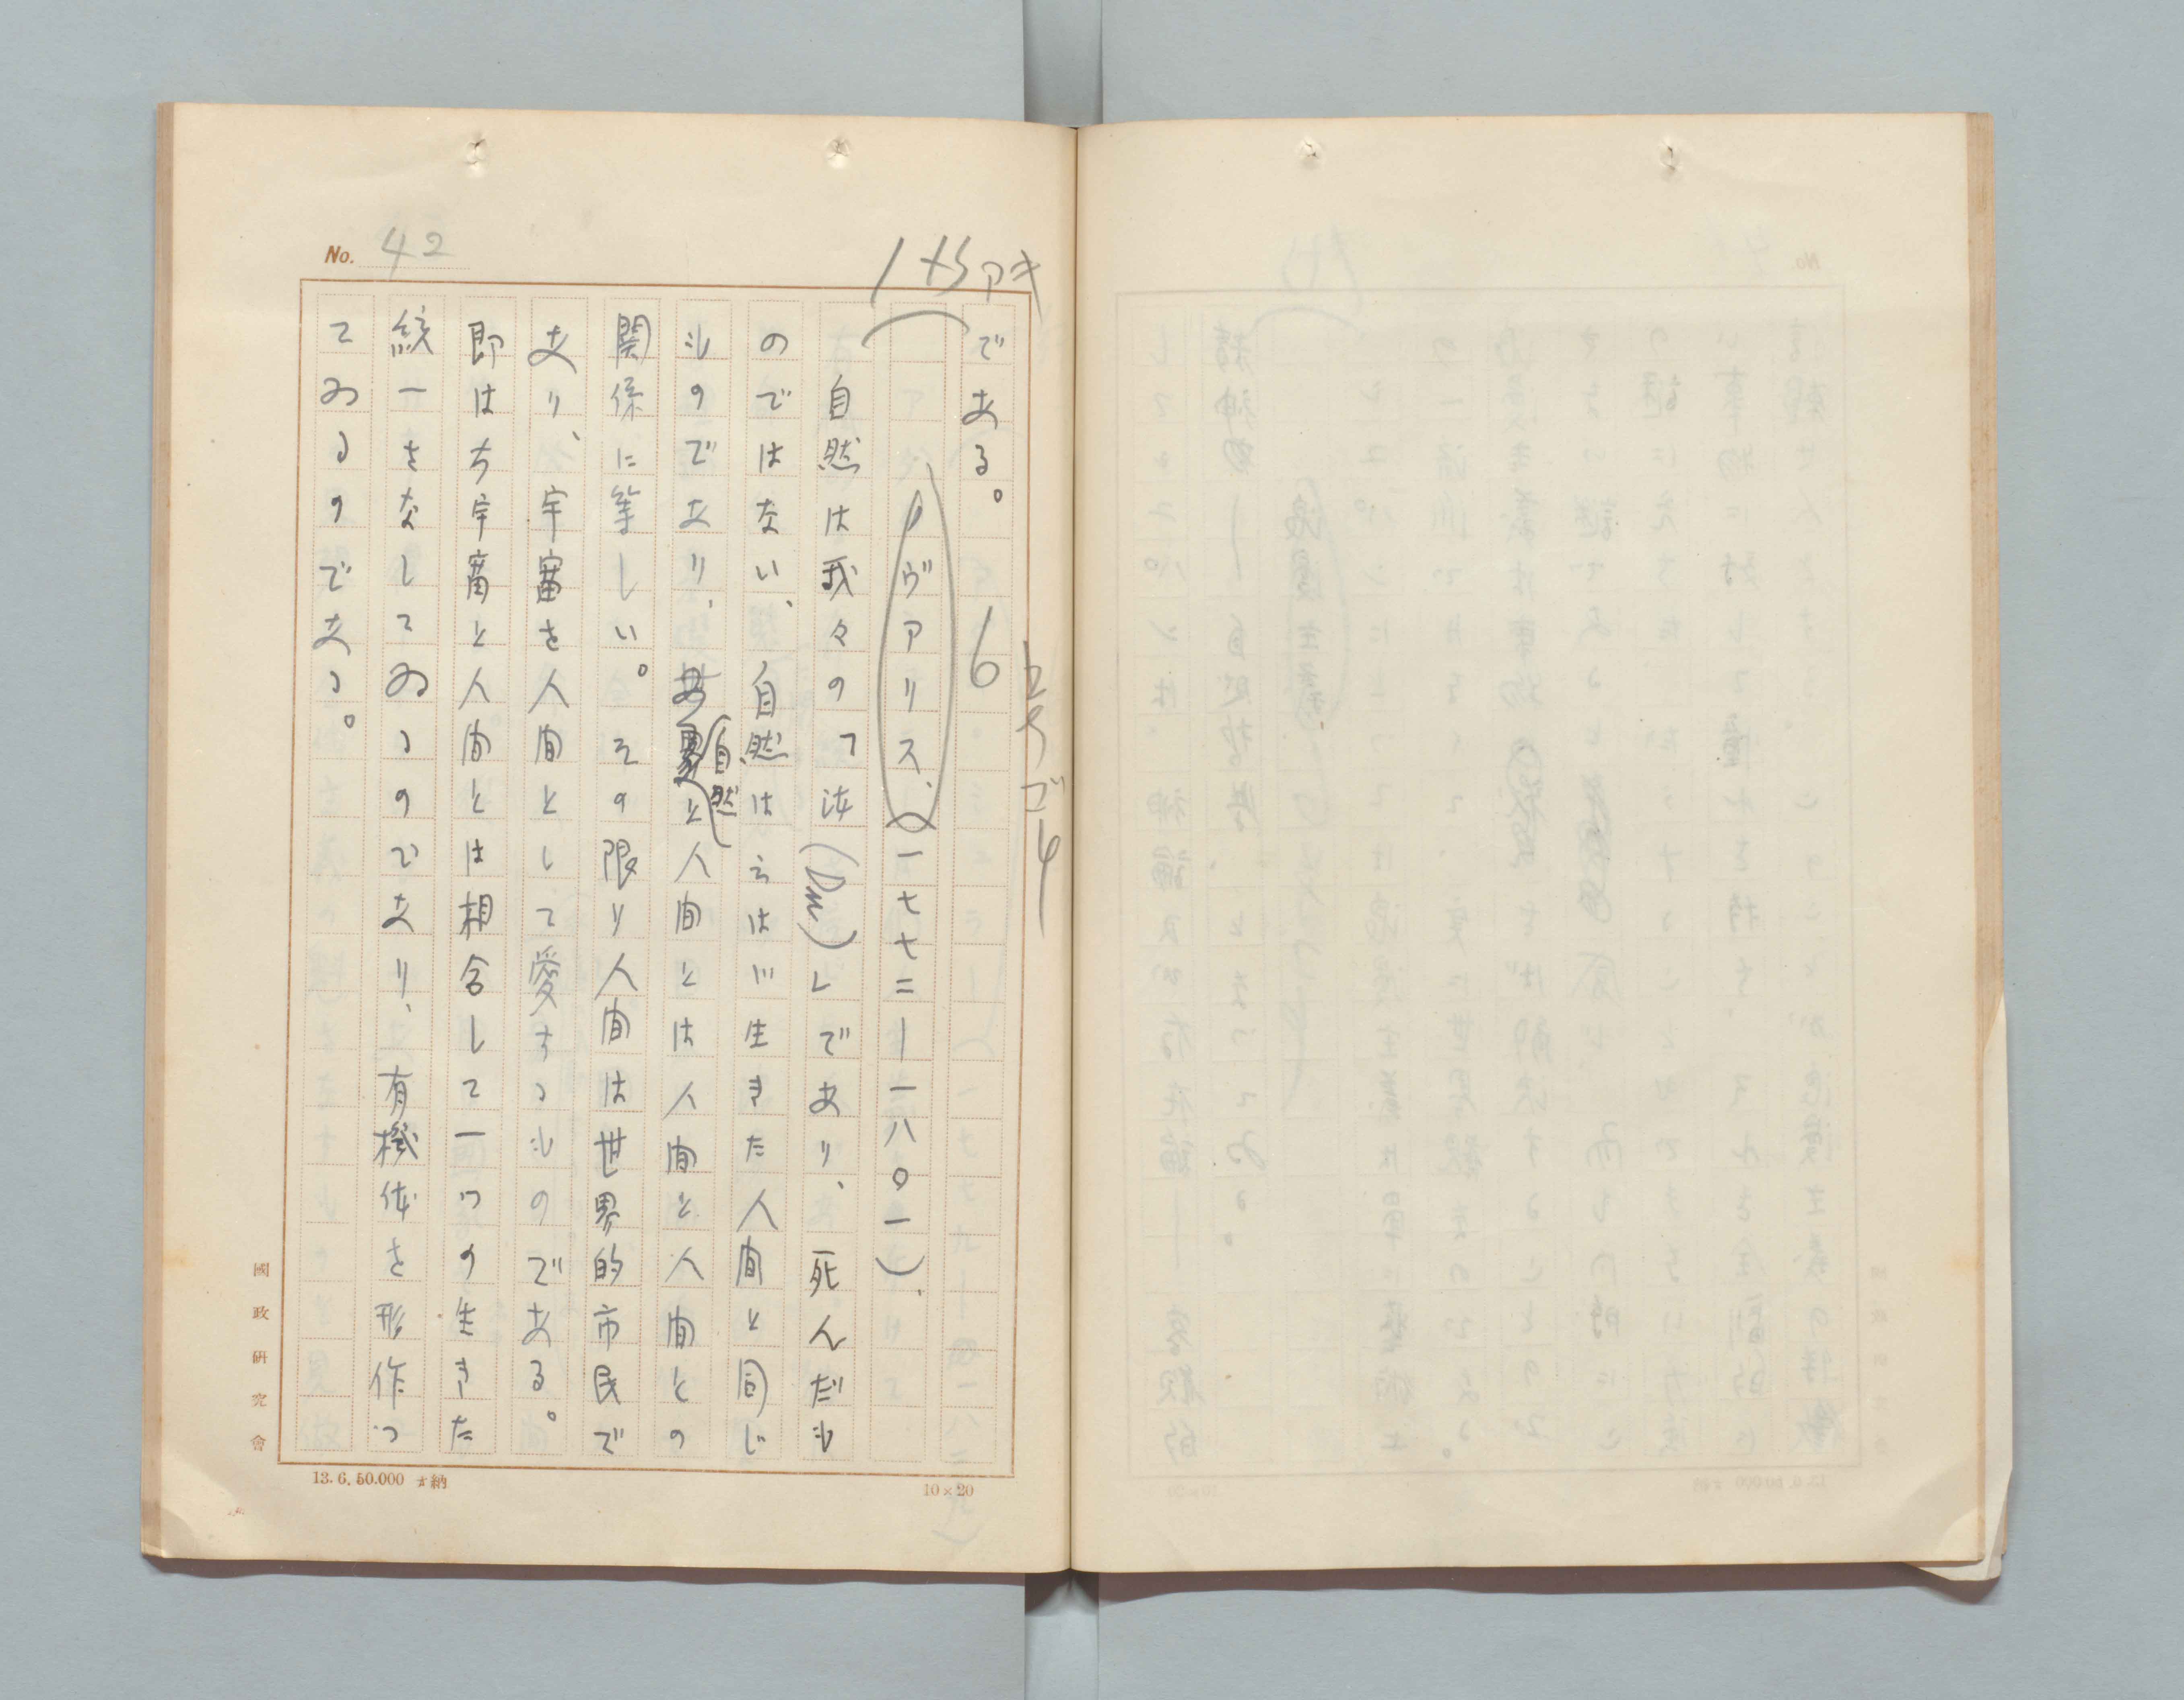 No. 42
1行アキ
である。
6
ゴチ
ノヴァリス、(一七七二ー一八〇一)、
自然は我々の「汝(Du)」であり、死んだも
のではない、自然は云はゞ生きた人間と同じ
ものであり、自然と人間とは人間と人間との
関係に等しい。その限り人間は世界的市民で
あり、宇宙を人間として愛するものである。
即はち宇宙と人間とは相合して一つの生きた
統一をなしてゐるのであり、有機体を形作つ
てゐるのである。
國政研究會
13.6.50.000 納
10×20